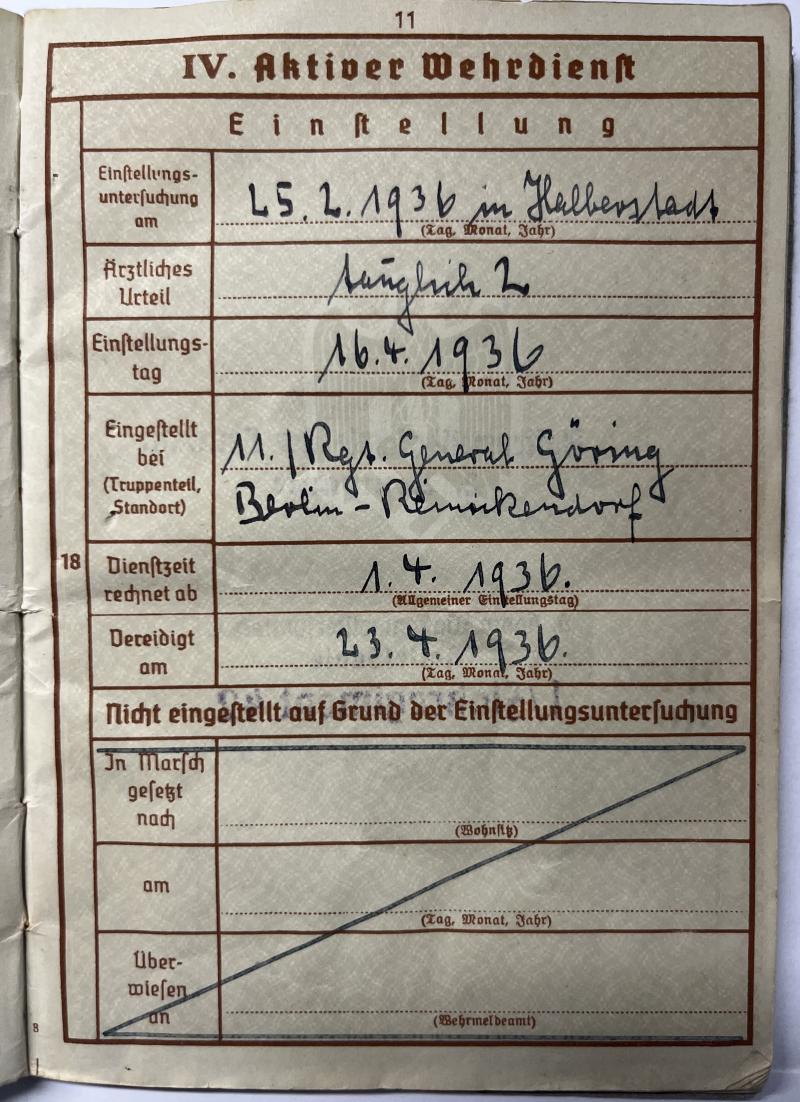 11
IV. Aktiver Wehrdienst
Einstellung
Einstellungs-
untersuchung
am
25. 2. 1936 in Halberstadt
(Tag, Monat, Jahr)
Ärztliches
Urteil
tauglich 2
Einstellungs-
tag
16. 4. 1936
(Tag, Monat, Jahr)
Eingestellt
bei
(Truppenteil,
Standort)
11./Rgt. General Göring
Berlin-Reinickendorf
18
Dienstzeit
rechnet ab
1. 4. 1936.
(Allgemeiner Einstellungstag)
Vereidigt
am
23. 4. 1936.
(Tag, Monat, Jahr)
Nicht eingestellt auf Grund der Einstellungsuntersuchung
In Marsch
gesetzt
nach
(Wohnsitz)
am
(Tag, Monat, Jahr)
Über-
wiesen
an
(Wehrmeldeamt)
8